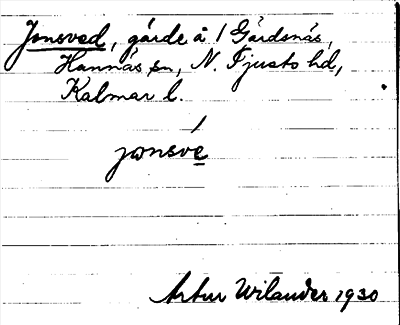 Jonsved, gärde å 1 Gärdsnäs,
Hannäs sn, N. Tjusto hd,
Kalmar l.
jonsvé
Artur Wilander 1930